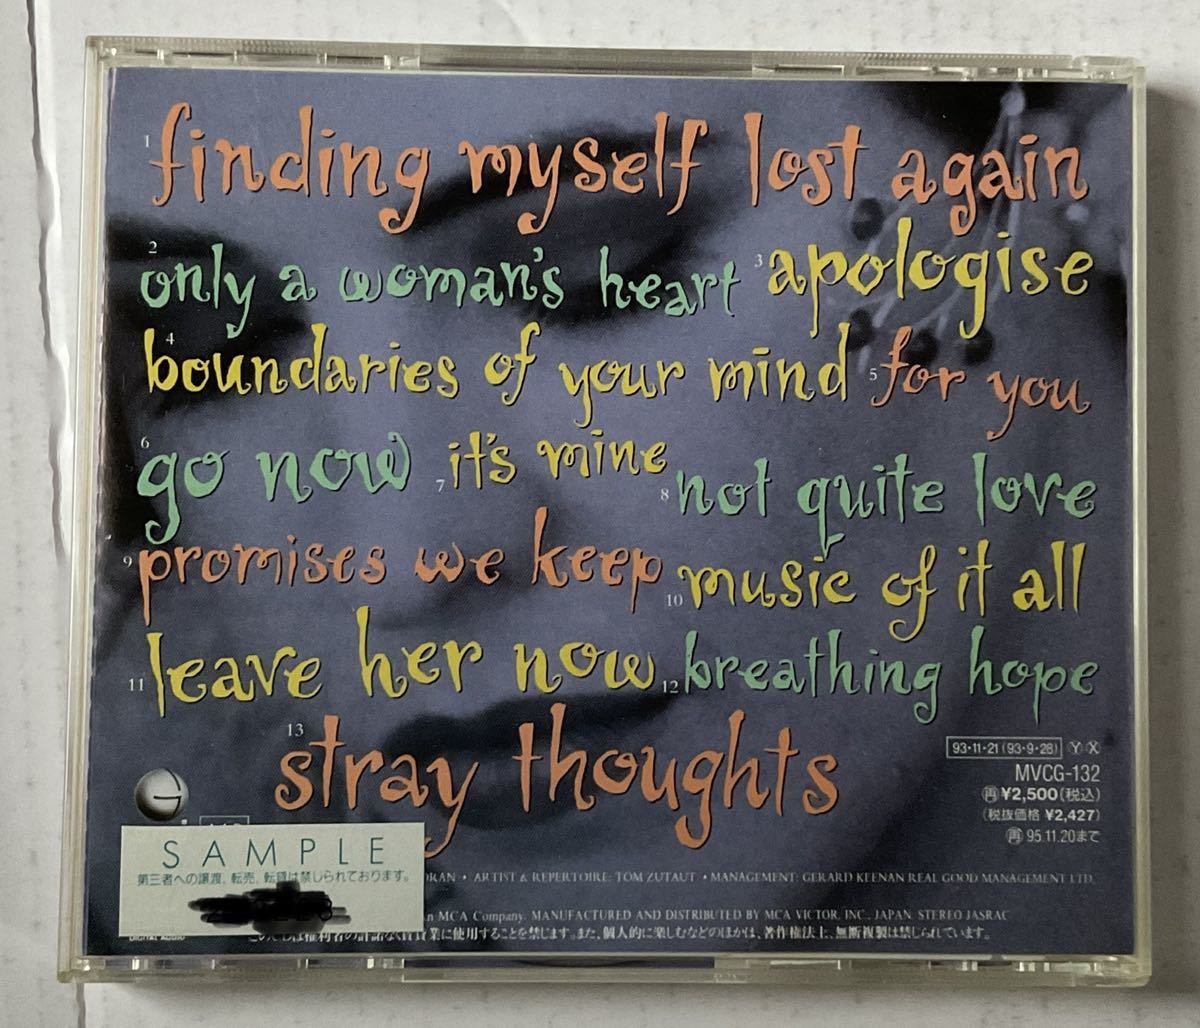 1 finding myself lost again
2 only a woman's heart 3 apologise
4 boundaries of your mind 5 for you
6 go now 7 it's mine 8 not quite love
9 promises we keep 10 music of it all
11 leave her now 12 breathing hope
13 stray thoughts
93・11・21 (93・9・28) Ⓨ Ⓧ
MVCG-132
㊢¥2,500(税込)
(税抜価格 ¥2,427)
㊢ 95.11.20まで
SAMPLE
第三者への譲渡、転売、転貸は禁じられております。
ORAN • ARTIST & REPERTOIRE: TOM ZUTAUT • MANAGEMENT: GERARD KEENAN REAL GOOD MANAGEMENT LTD.
an MCA Company. MANUFACTURED AND DISTRIBUTED BY MCA VICTOR, INC., JAPAN. STEREO JASRAC
DIGITAL AUDIO
を禁じます。また、個人的に楽しむなどのほかは、著作権法上、無断複製は禁じられています。